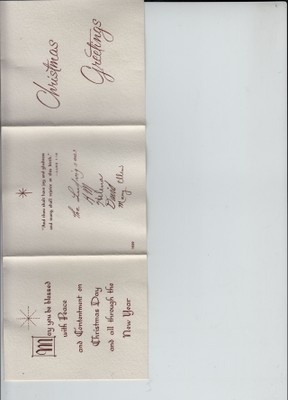 Christmas
Greetings
"And thou shalt have joy and gladness
and many shall rejoice at his birth."
The
J.M.
Thelma
David
Mary Ellen
May you be blessed
with Peace
and Contentment on
Christmas Day
and all through the
New Year